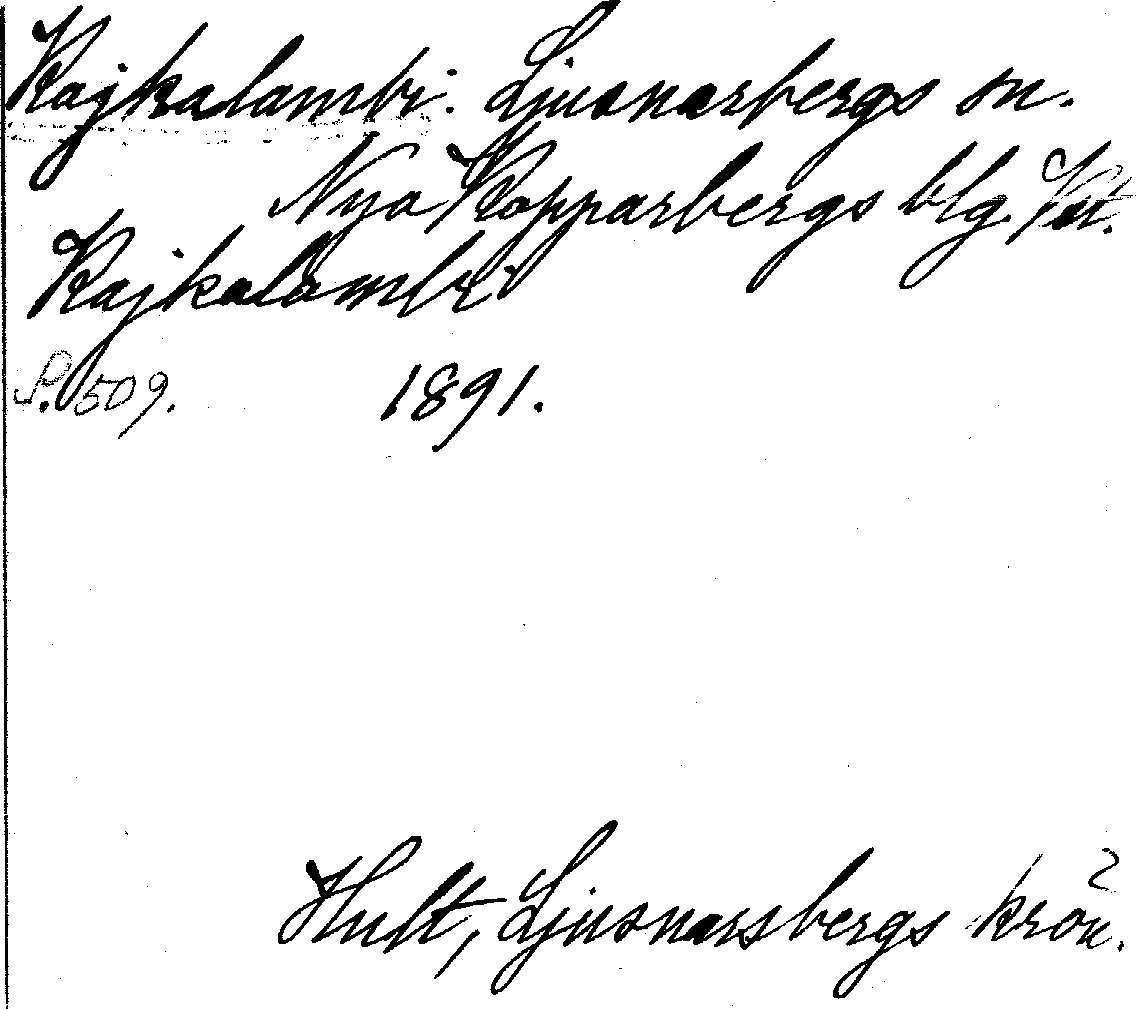 Kajkalambi. Ljusnarsbergs sn.
Nya Kopparbergs blg. Vst.
Kajkalambi
S. 509. 1891.
Hult, Ljusnarsbergs krön.